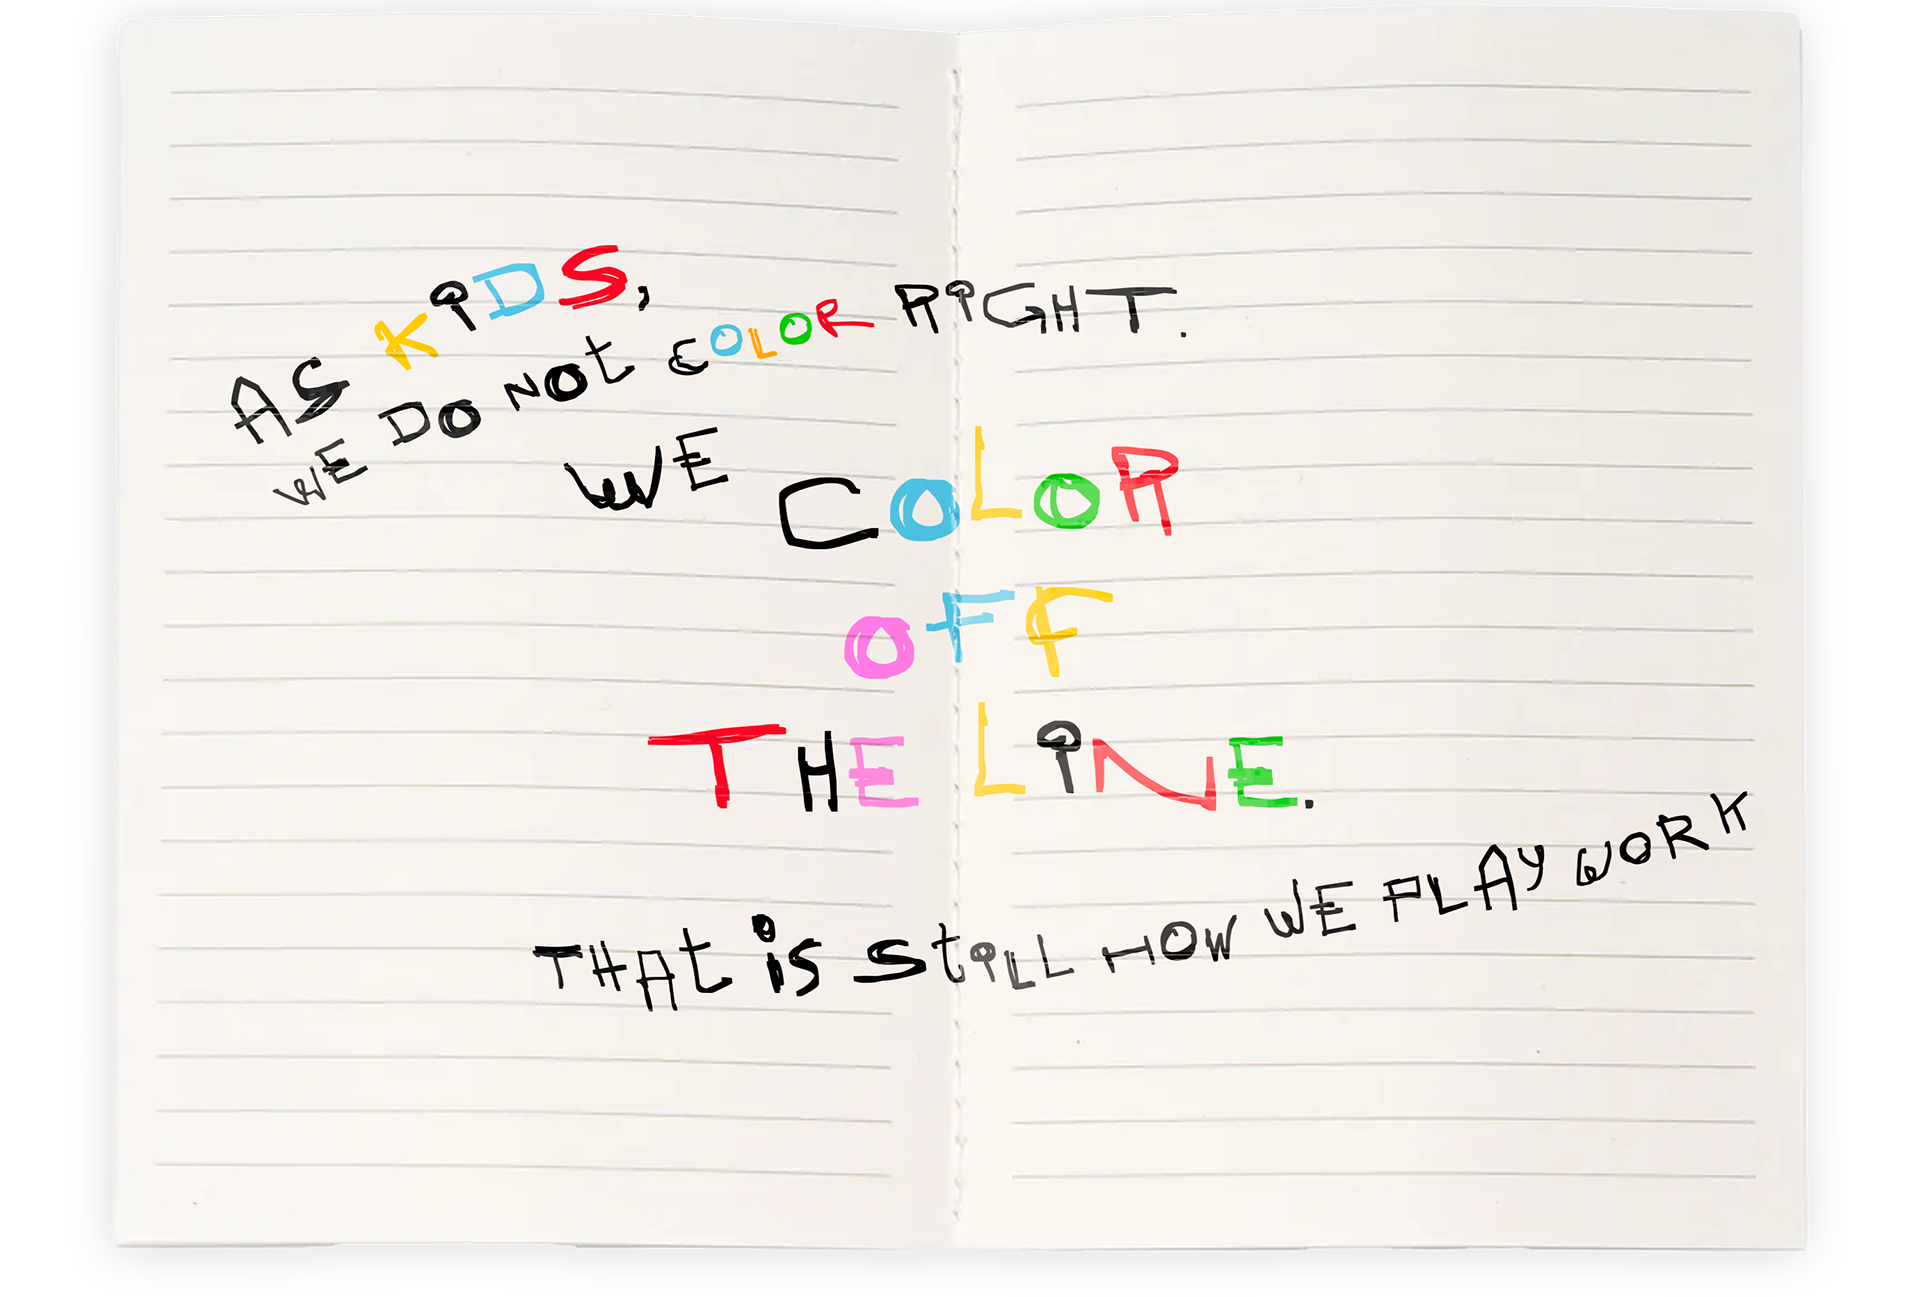 AS KiDS,
WE DO NOt COLOR RiGHT.
WE COLOR
OFF
THE LiNE.
THAt is StiLL HOW WE PLAY WORK